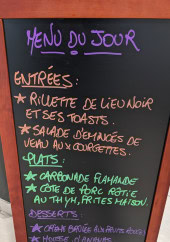 MENU DU JOUR
ENTRÉES :
★ RILLETTE DE LIEU NOIR
ET SES TOASTS.
★ SALADE D'EMINCÉS DE
VEAU AUX COURGETTES.
PLATS :
★ CARBONADE FLAMANDE
★ CÔTE DE PORC RÔTIE
AU THYM, FRITES MAISON.
DESSERTS
★ CRÈME BRÛLÉE AUX FRUITS ROUGES
★ MOUSSE D'ANANAS